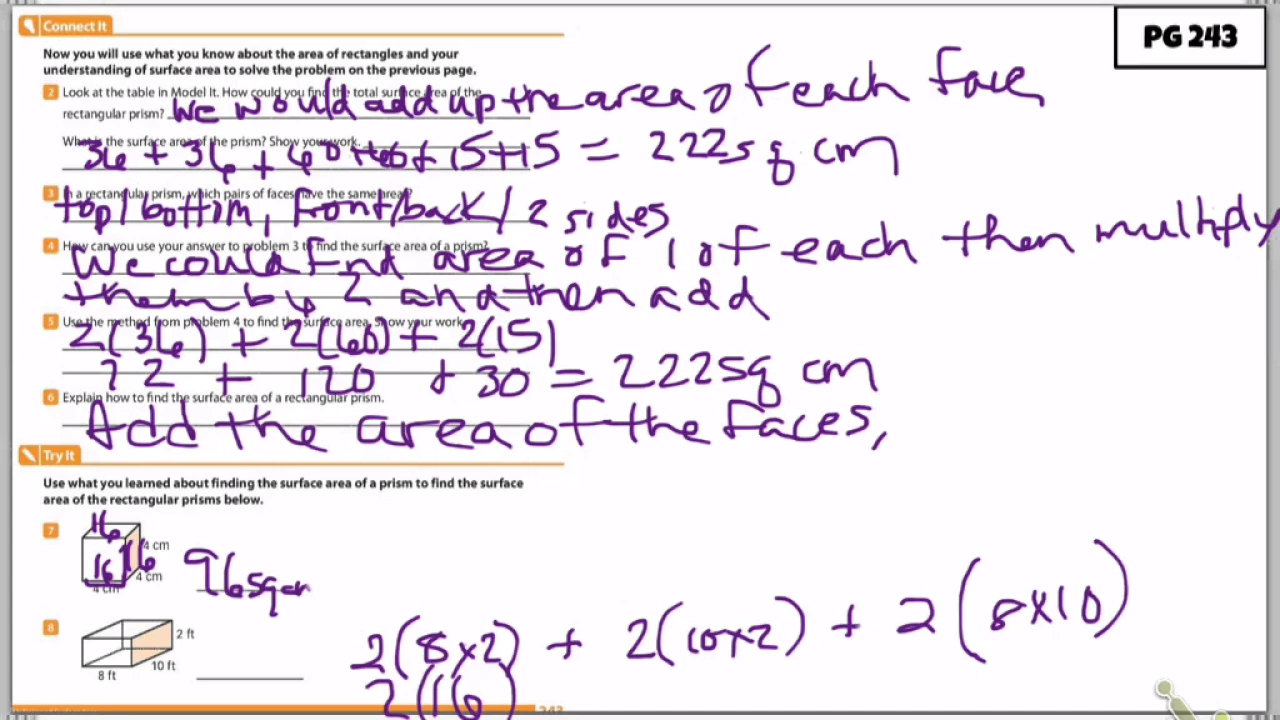 Connect It
PG 243
Now you will use what you know about the area of rectangles and your
understanding of surface area to solve the problem on the previous page.
2 Look at the table in Model It. How could you find the total surface area of the
rectangular prism? We would add up the area of each face
What is the surface area of the prism? Show your work.
36 + 36 + 60 + 60 + 15 + 15 = 222 sq cm
3 In a rectangular prism, which pairs of faces have the same area?
top/bottom, front/back/2 sides
4 How can you use your answer to problem 3 to find the surface area of a prism?
We could find area of 1 of each then multiply
them by 2 and then add
5 Use the method from problem 4 to find the surface area. Show your work.
2(36) + 2(60) + 2(15)
72 + 120 + 30 = 222 sq cm
6 Explain how to find the surface area of a rectangular prism.
Add the area of the faces,
Try It
Use what you learned about finding the surface area of a prism to find the surface
area of the rectangular prisms below.
7
16
4 cm
16 16
4 cm
4 cm
96 sq cm
8
2 ft
10 ft
8 ft
2(8x2) + 2(10x2) + 2(8x10)
2(16)
243